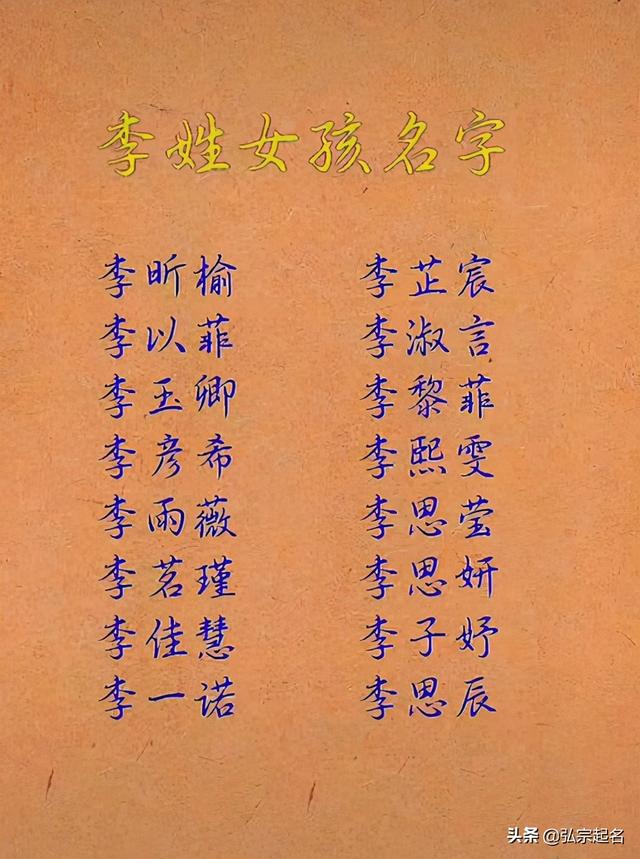 李姓女孩名字
李昕榆 李芷宸
李以菲 李淑言
李玉卿 李黎菲
李彦希 李熙雯
李雨薇 李思莹
李茗瑾 李思妍
李佳慧 李子妤
李一诺 李思辰
头条 @弘宗起名